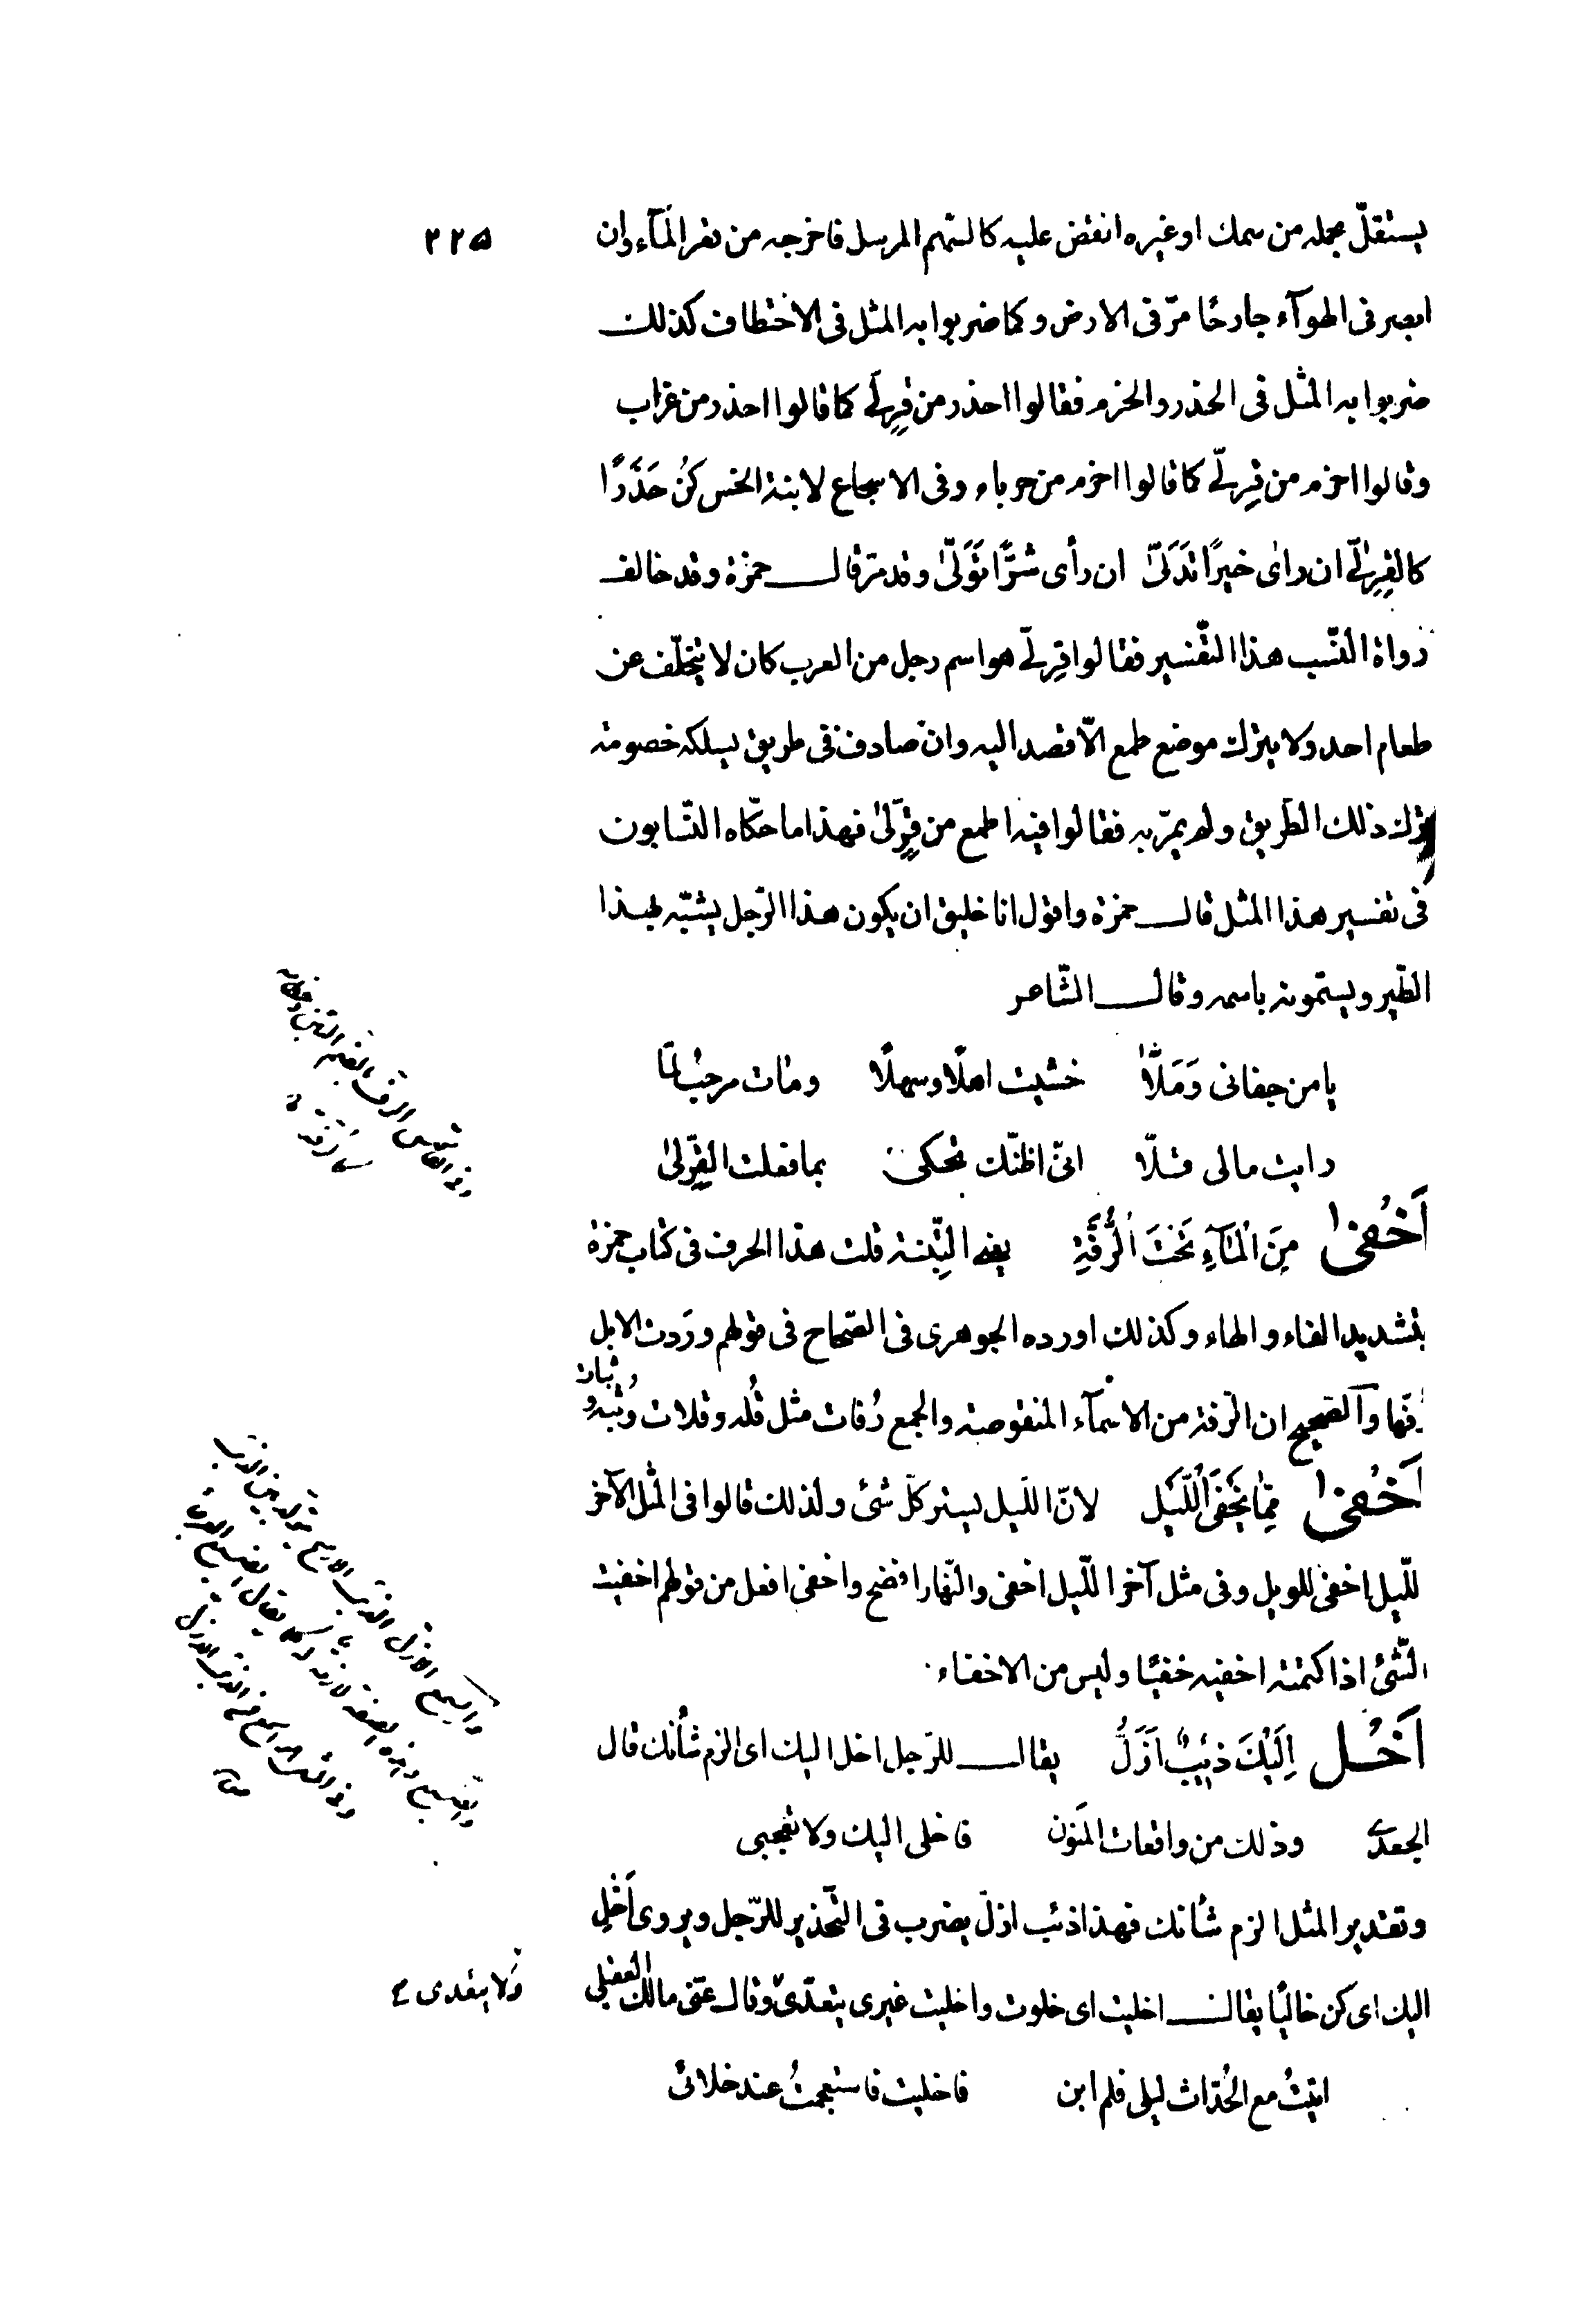 ٢٢٥
يستقلّ بحمله من سمك او غيره انقض عليه كالسّهم المرسل فاخرجه من قعر المآء وان
ابصر فى الهوآء جارحًا مرّ فى الارض وكما ضربوا به المثل فى الاختطاف كذلك
ضربوا به المثل فى الحذر والحزم فقالوا احذر من قِرِلّى كما قالوا احذر من غراب
وقالوا احزم من قِرِلّى كما قالوا احزم من حرباء وفى الاسجاع لابنة الخس كُن حَذَرًا
كالقِرِلّى ان راٰى خيرًا تَدَلّىٰ ان رأى شرًّا تَوَلّىٰ وقد مرّ قال حمزة وقد خالف
رواة النّسب هذا التّفسير فقالوا قِرِلّى هو اسم رجل من العرب كان لا يتخلّف عن
طعام احد ولا يترك موضع طمع الّا قصد اليه وان صادف فى طريق يسلكه خصومة
ترك ذلك الطّريق ولم يمرّ به فقالوا فيه اطمع من قِرِلّىٰ فهذا ما حكاه النّسّابون
فى تفسير هذا المثل قال حمزة واقول انا خليق ان يكون هذا الرّجل يشبّه بهذا
الطّير ويسمّونه باسمه وقال الشّاعر
يا من جفانى وَمَلّاٰ خشيت اهلًا وسهلًا ومات مرحبُ لمّا
رايت مالى قلّا انّى اظنّك تحكى بما فعلت القِرِلّىٰ
اَخْفىٰ مِنَ الْمَآءِ تَحْتَ الرُّفَّةِ يعنى التّبنة قلت هذا الحرف فى كتاب حمزة
بتشديد الفاء والهاء وكذلك اورده الجوهرى فى الصّحاح فى قولهم وردت الابل
رفّها والصّحيح ان الرّفة من الاسمآء المنقوصة والجمع رُفات مثل قُله وقلات وثُبه و
ثبات
اَخْفىٰ مِمّا يُخْفِى اللَّيْل لانّ اللّيل يستر كلّ شئ ولذلك قالوا فى المثل الآخر
اللّيل اخفى للويل وفى مثل آخر اللّيل اخفى والنّهار افضح واخفى افعل من قولهم اخفيت
الشّئ اذا كتمته اخفيه خفيًا وليس من الاخفاء
اَخْل اِلَيْكَ ذِئْبٌ اَزَلُّ يقال للرّجل اخل اليك اى الزم شأنك قال
الجعدى وذلك من واقعات المَنون فاخلى اليك ولا تعجبى
وتقدير المثل الزم شأنك فهذا ذئب ازلّ يضرب فى التّحذير للرّجل ويروى اَخْلِ
اليك اى كن خاليًا يقال اخليت اى خلوت واخليت غيرى يتعدّى وقال عتى مالك العقيلى
ولا يتعدى
اتيتُ مع الحُدّاث ليلى فلم ابن فاخليت فاستعجمتُ عند خلائى